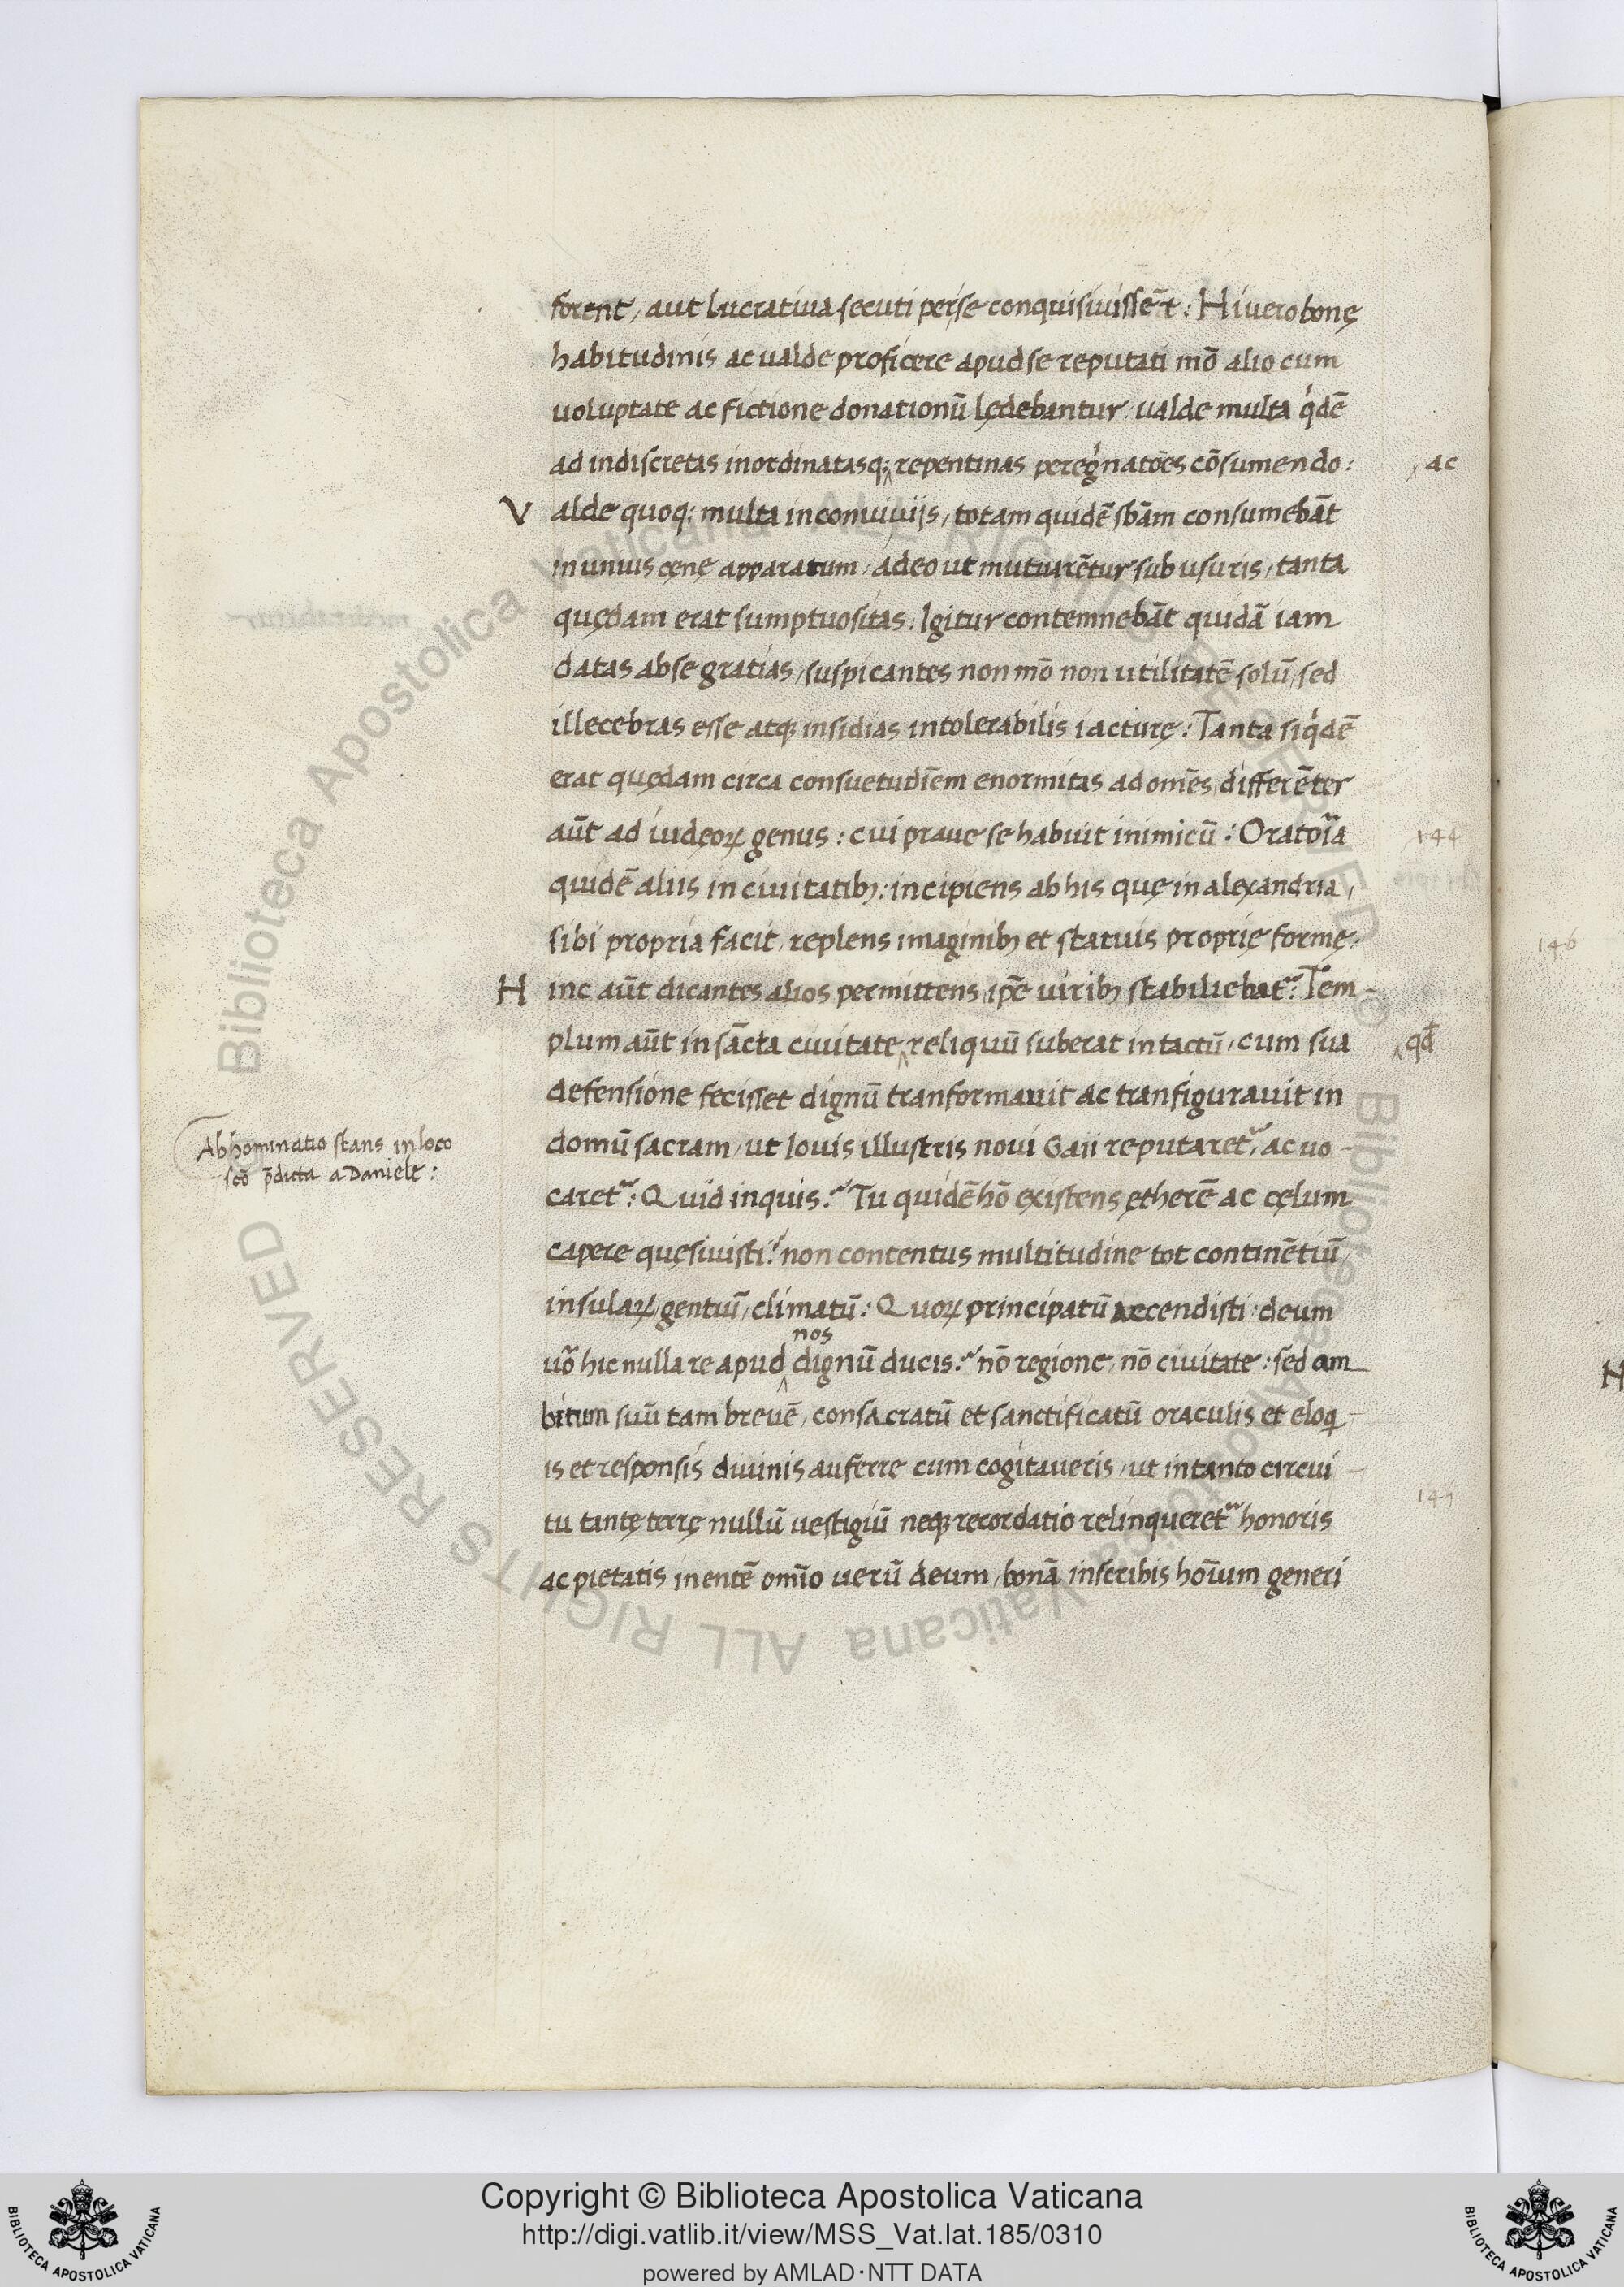 forent, aut lucratiua secuti per se conquisiuissēt: Hi uero bonę
habitudinis ac ualde proficere apud se reputati mō alio cum
uoluptate ac fictione donationū lędebantur, ualde multa qⁱdē
ad indiscretas inordinatasq; repentinas peregⁱnatōes cōsumendo:
ac
Valde quoq; multa in conuiuijs, totam quidē sbām consumebāt
in unius cęnę apparatum, adeo ut mutuarētur sub usuris, tanta
quędam erat sumptuositas. Igitur contemnebāt quidā iam
datas ab se gratias, suspicantes non mō non utilitatē solū, sed
illecebras esse atq; insidias intolerabilis iacturę: Tanta siqⁱdē
erat quędam circa consuetudīem enormitas ad omēs, differēter
aūt ad iudęoꝝ genus: cui praue se habuit inimicū: Oratoīa
144
quidē aliis in ciuitatibꝫ: incipiens ab his quę in alexandria,
sibi propria facit, replens imaginibꝫ et statuis proprię formę.
146
Hinc aūt dicantes alios permittens, ip̄e uiribꝫ stabiliebat~: Tem-
plum aūt in sācta ciuitate, reliquū suberat intactū, cum sua
qđ
defensione fecisset dignū tranformauit ac tranfigurauit in
domū sacram, ut Iouis illustris noui Gaii reputaret~, ac uo-
Abhominatio stans in loco
scō p̄dicta a Daniele:
caret~: Quid inquis? Tu quidē hō existens ętherē ac cęlum
capere quęsiuisti? non contentus multitudine tot continētiū
insulaꝝ, gentiū, climatū: Quoꝝ principatū accendisti: deum
nos
uō hic nulla re apud dignū ducis? nō regione, nō ciuitate: sed am
bitum suū tam breuē, consacratū et sanctificatū oraculis et eloq-
is et responsis diuinis auferre cum cogitaueris, ut in tanto circui-
149
tu tantę terrę nullū uestigiū neq; recordatio relinqueret~ honoris
ac pietatis in entē omīo uerū deum, bonā inscribis hoīum generi
H
Copyright © Biblioteca Apostolica Vaticana
http://digi.vatlib.it/view/MSS_Vat.lat.185/0310
powered by AMLAD·NTT DATA
BIBLIOTECA APOSTOLICA VATICANA
BIBLIOTECA APOSTOLICA VATICANA
© Biblioteca Apostolica Vaticana ALL RIGHTS RESERVED
Biblioteca Apostolica Vaticana ALL RIGHTS RESERVED